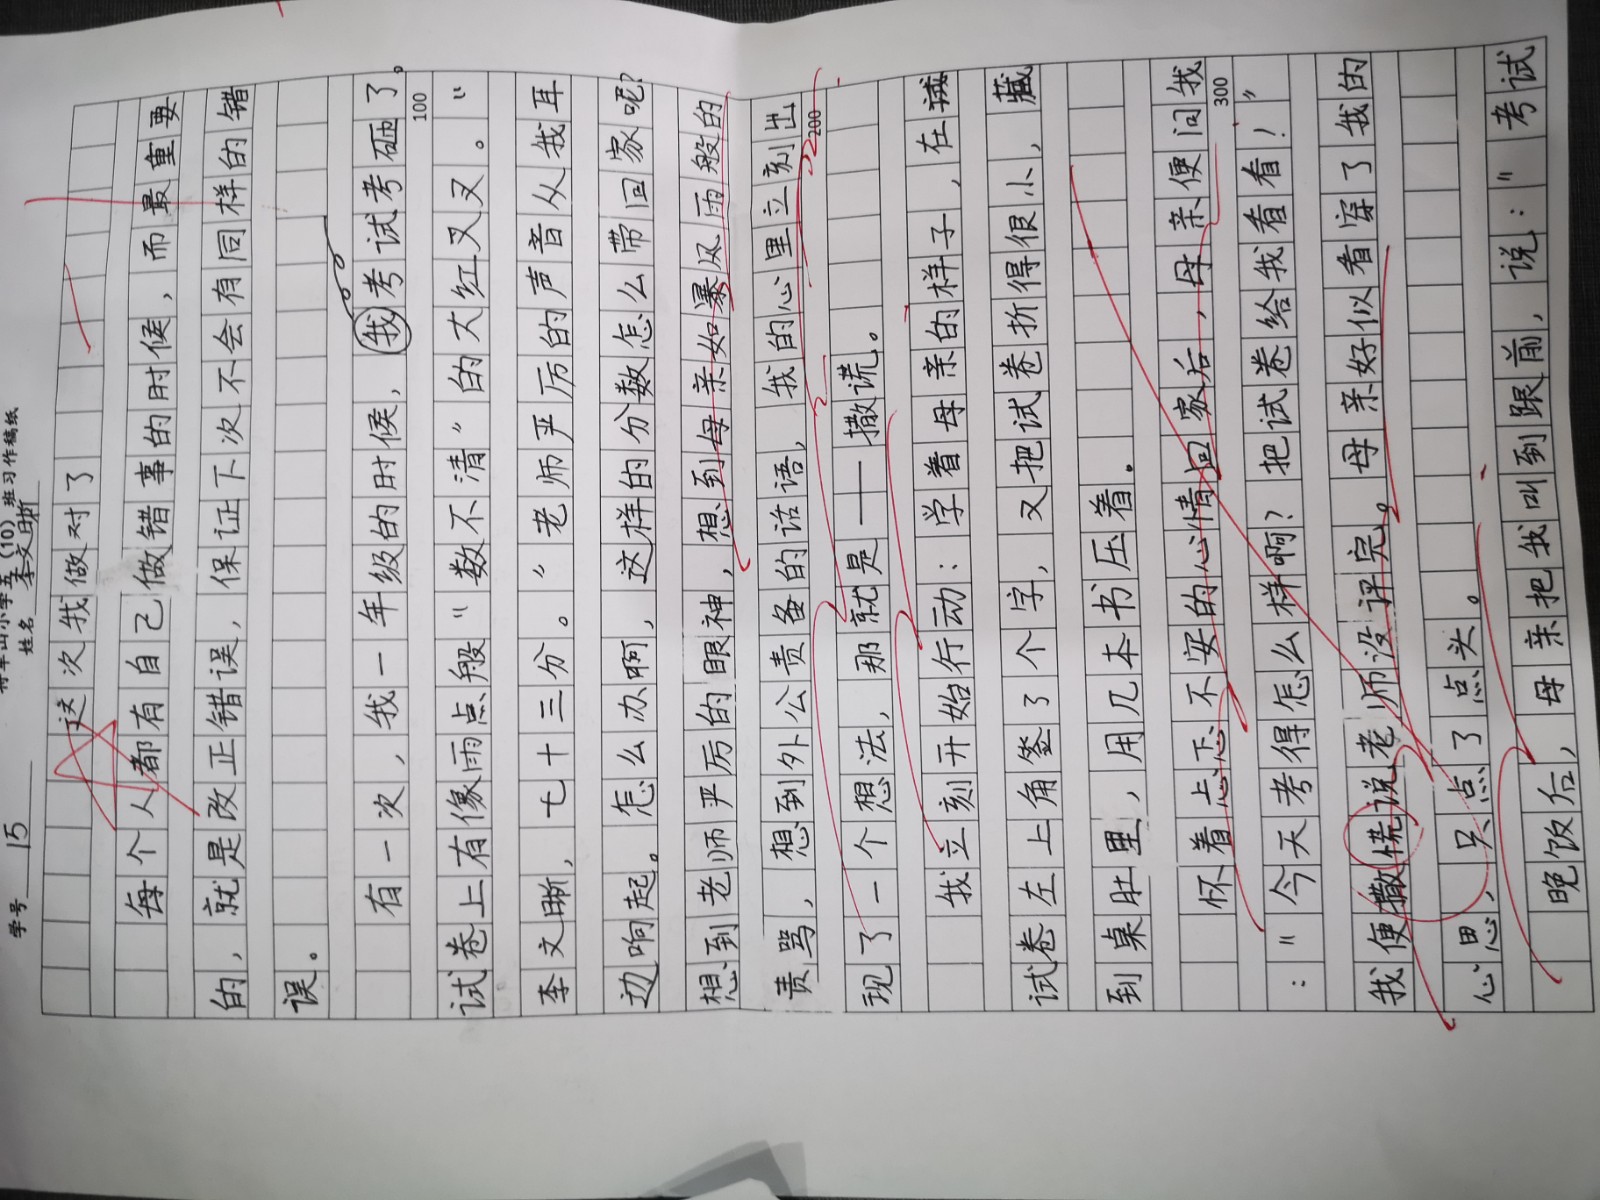 学号 15 姓名 李文晰
小学五(10)班习作稿纸
这次我做对了
每个人都有自己做错事的时候，而最重要
的，就是改正错误，保证下次不会有同样的错
误。
有一次，我一年级的时候，我考试考砸了。
100
试卷上有像雨点般“数不清”的大红叉叉。“
李文晰，七十三分。”老师严厉的声音从我耳
边响起。怎么办啊，这样的分数怎么带回家呢？
想到老师严厉的眼神，想到母亲如暴风雨般的
责骂，想到外公责备的话语，我的心里立刻出
200
现了一个想法，那就是——撒谎。
我立刻开始行动：学着母亲的样子，在
试卷左上角签了个字，又把试卷折得很小，藏
到桌肚里，用几本书压着。
怀着忐忑不安的心情回家后，母亲便问我
300
：“今天考得怎么样啊？把试卷给我看看！”
我便撒慌说老师没评完。母亲好似看穿了我的
心思，只点了点头。
晚饭后，母亲把我叫到跟前，说：“考试